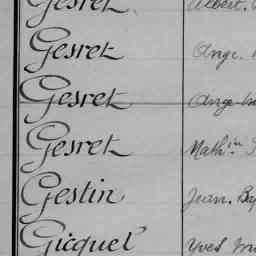 Gesret Albert.
Gesret Ange.
Gesret Ange
Gesret Math.in
Gestin Jean. Bap
Gicquel Yves